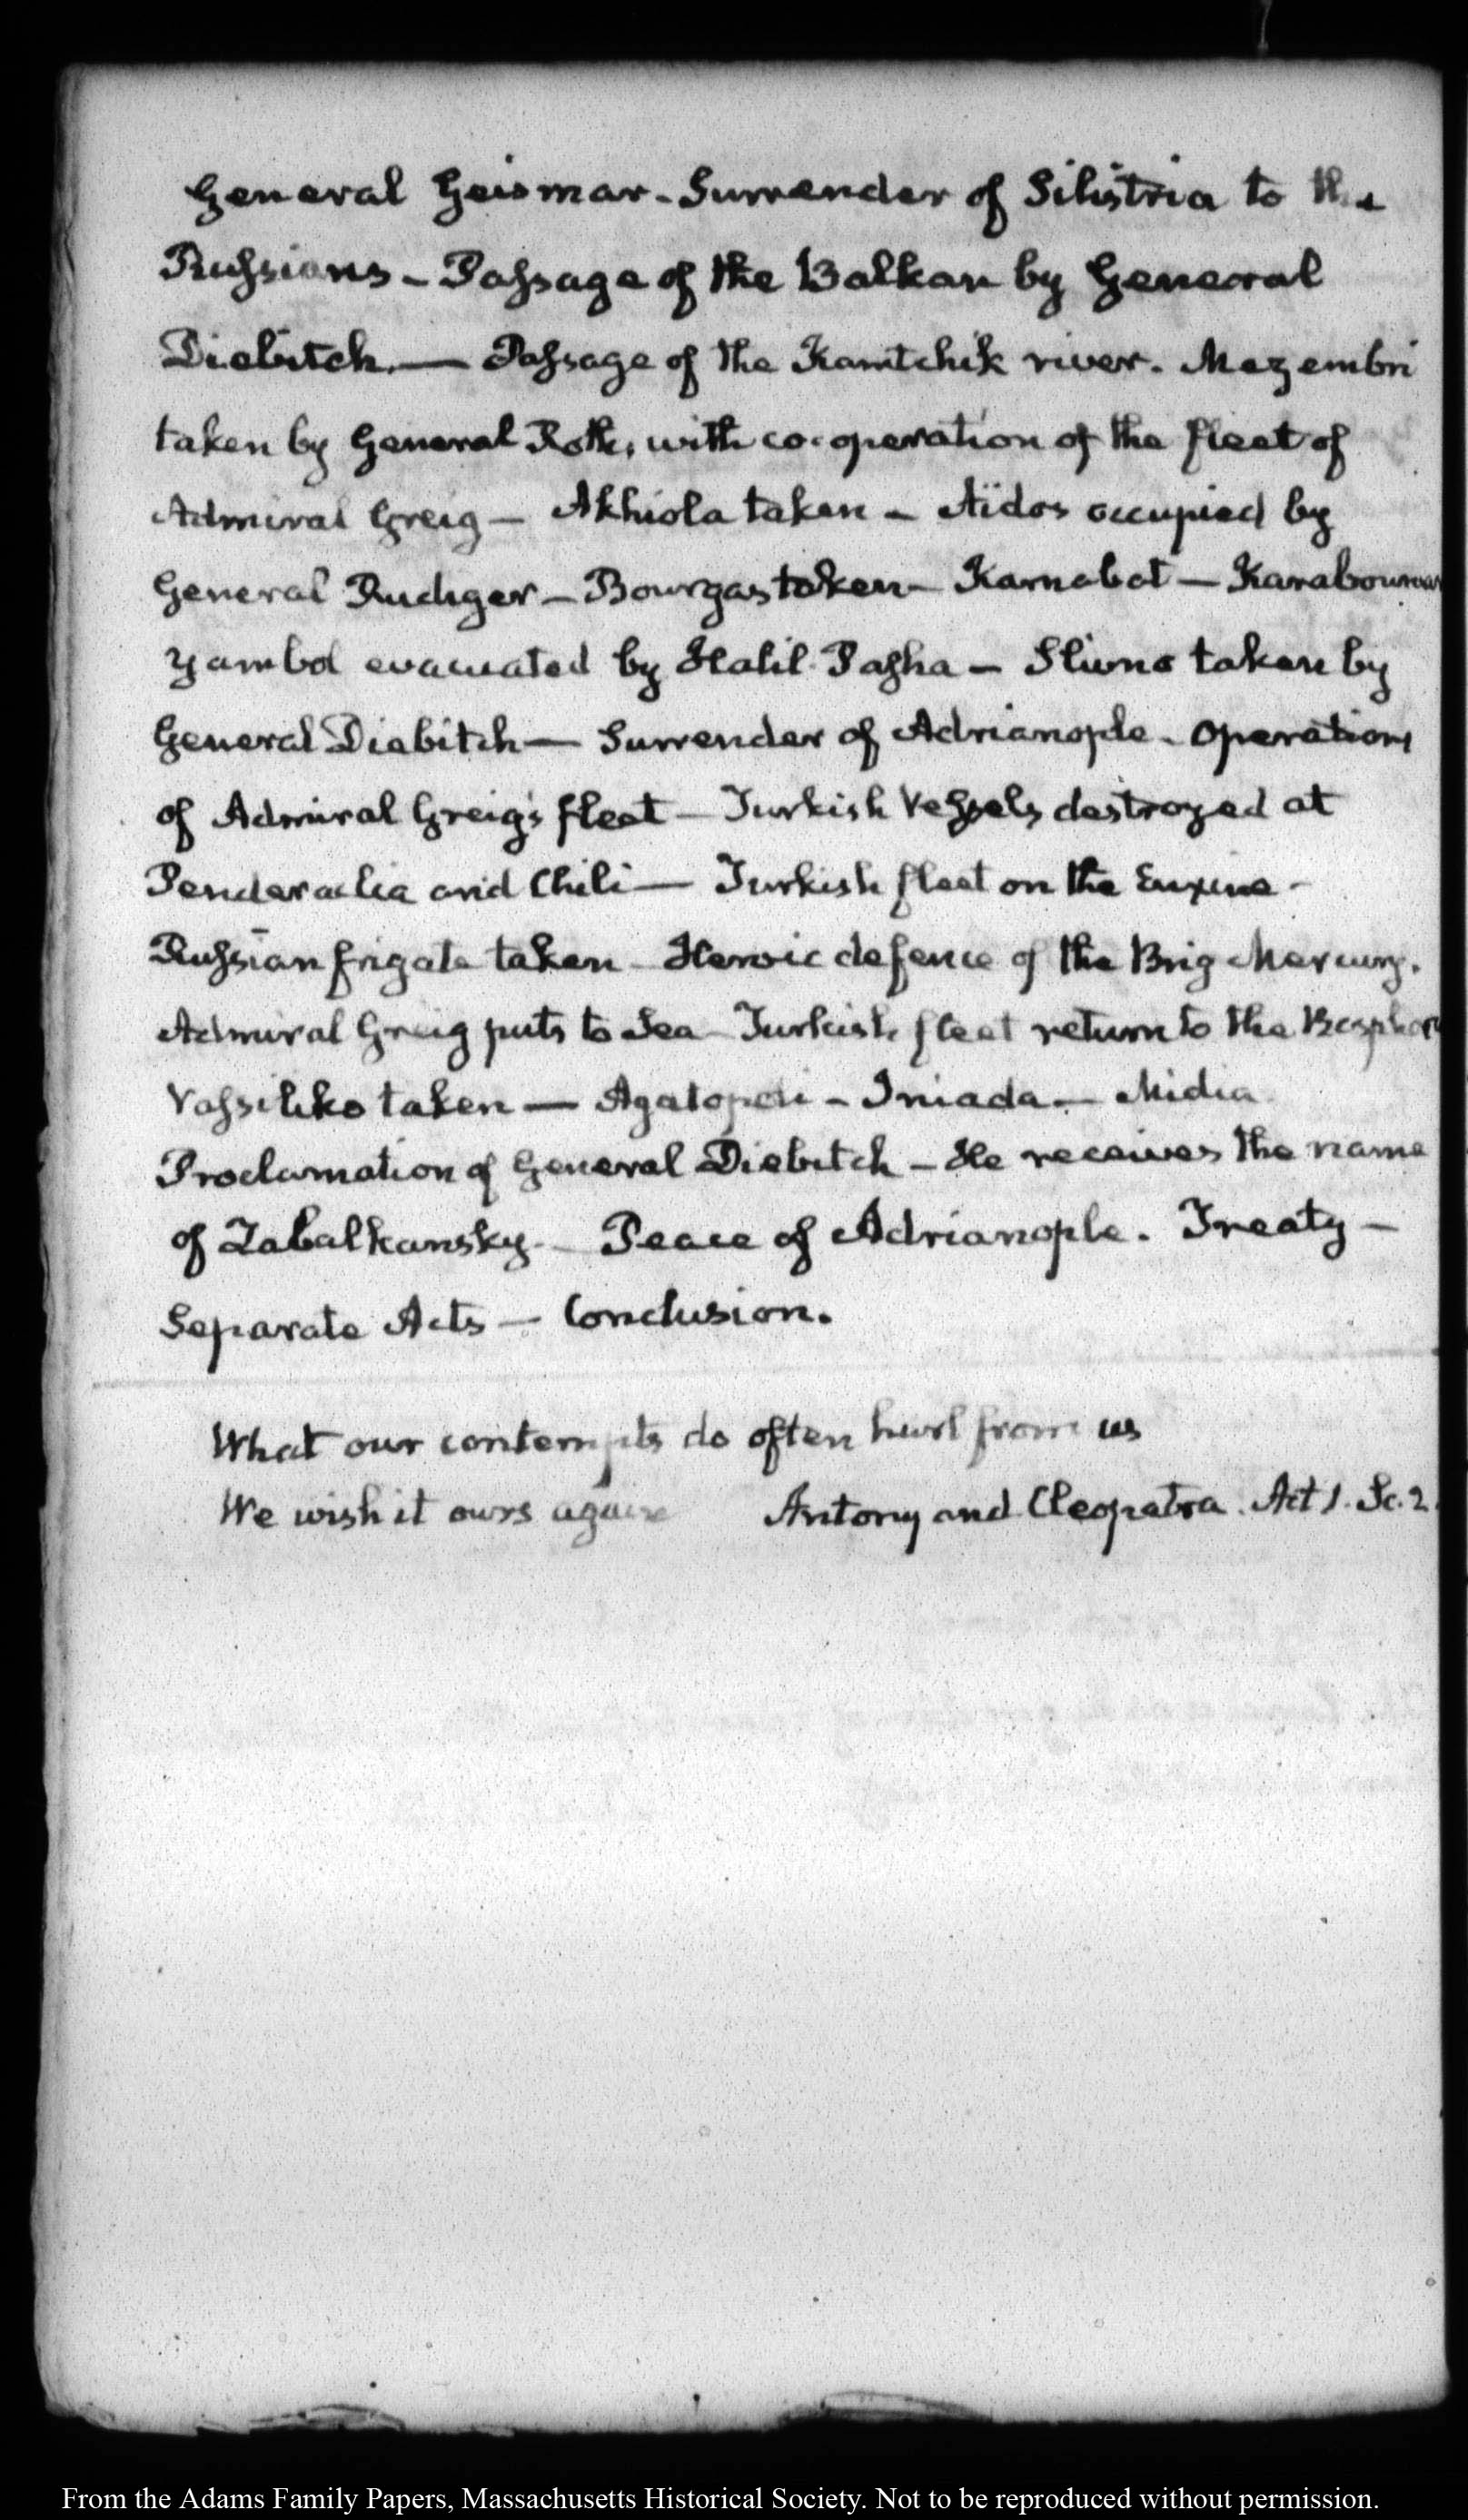 General Geismar - Surrender of Silistria to the
Russians - Passage of the Balkan by General
Diebitch. — Passage of the Kamtchik river. Mezembri
taken by General Roth, with co-operation of the fleet of
Admiral Greig — Akhiola taken — Aïdos occupied by
General Rudiger — Bourgas taken — Karnabat —
Yambol evacuated by Halil Pasha — Slivno taken by
General Diebitch — Surrender of Adrianople - Operations
of Admiral Greig's fleet — Turkish Vessels destroyed at
Penderaclia and Chili — Turkish fleet on the Euxine -
Russian frigate taken - Heroic defence of the Brig Mercury.
Admiral Greig puts to Sea - Turkish fleet return to the
Vassiliko taken — Agatopoli - Iniada — Midia
Proclamation of General Diebitch — He receives the name
of Zabalkansky - Peace of Adrianople. Treaty —
Separate Acts — Conclusion.
What our contempts do often hurl from us
We wish it ours again Antony and Cleopatra. Act 1. Sc. 2.
From the Adams Family Papers, Massachusetts Historical Society. Not to be reproduced without permission.